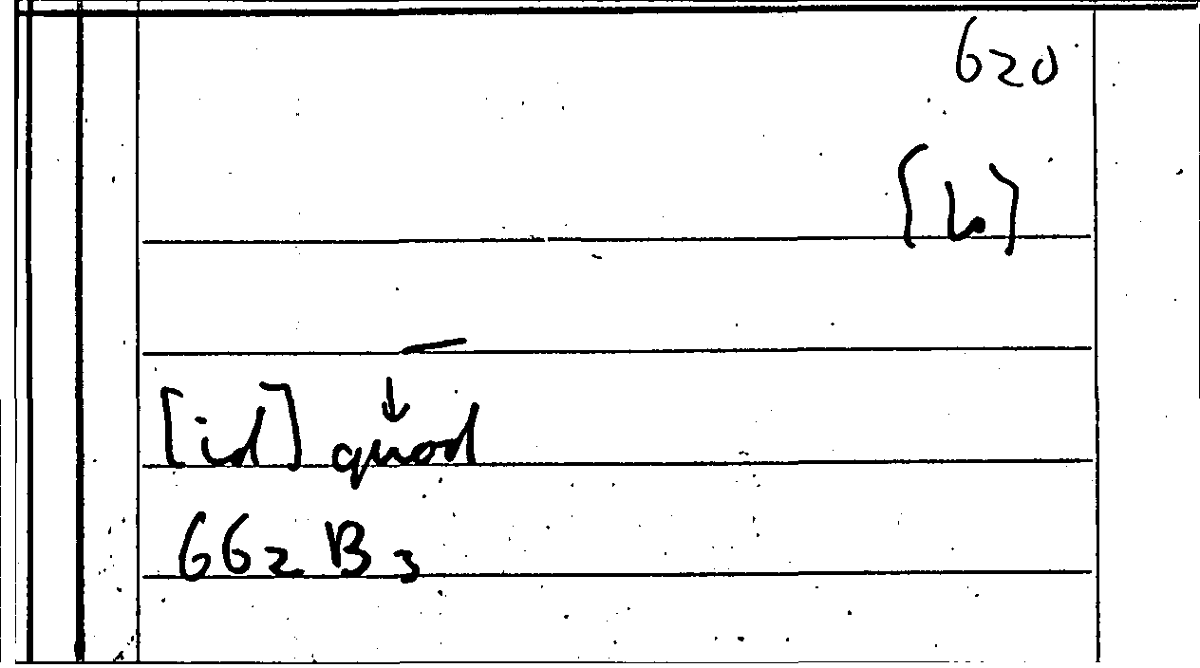 620
[id] quod
662 B3